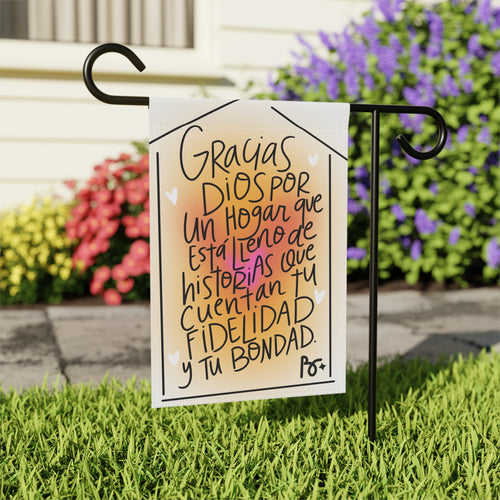 Gracias
Dios por
un Hogar que
está lleno de
historias que
cuentan tu
fidelidad
y tu bondad.